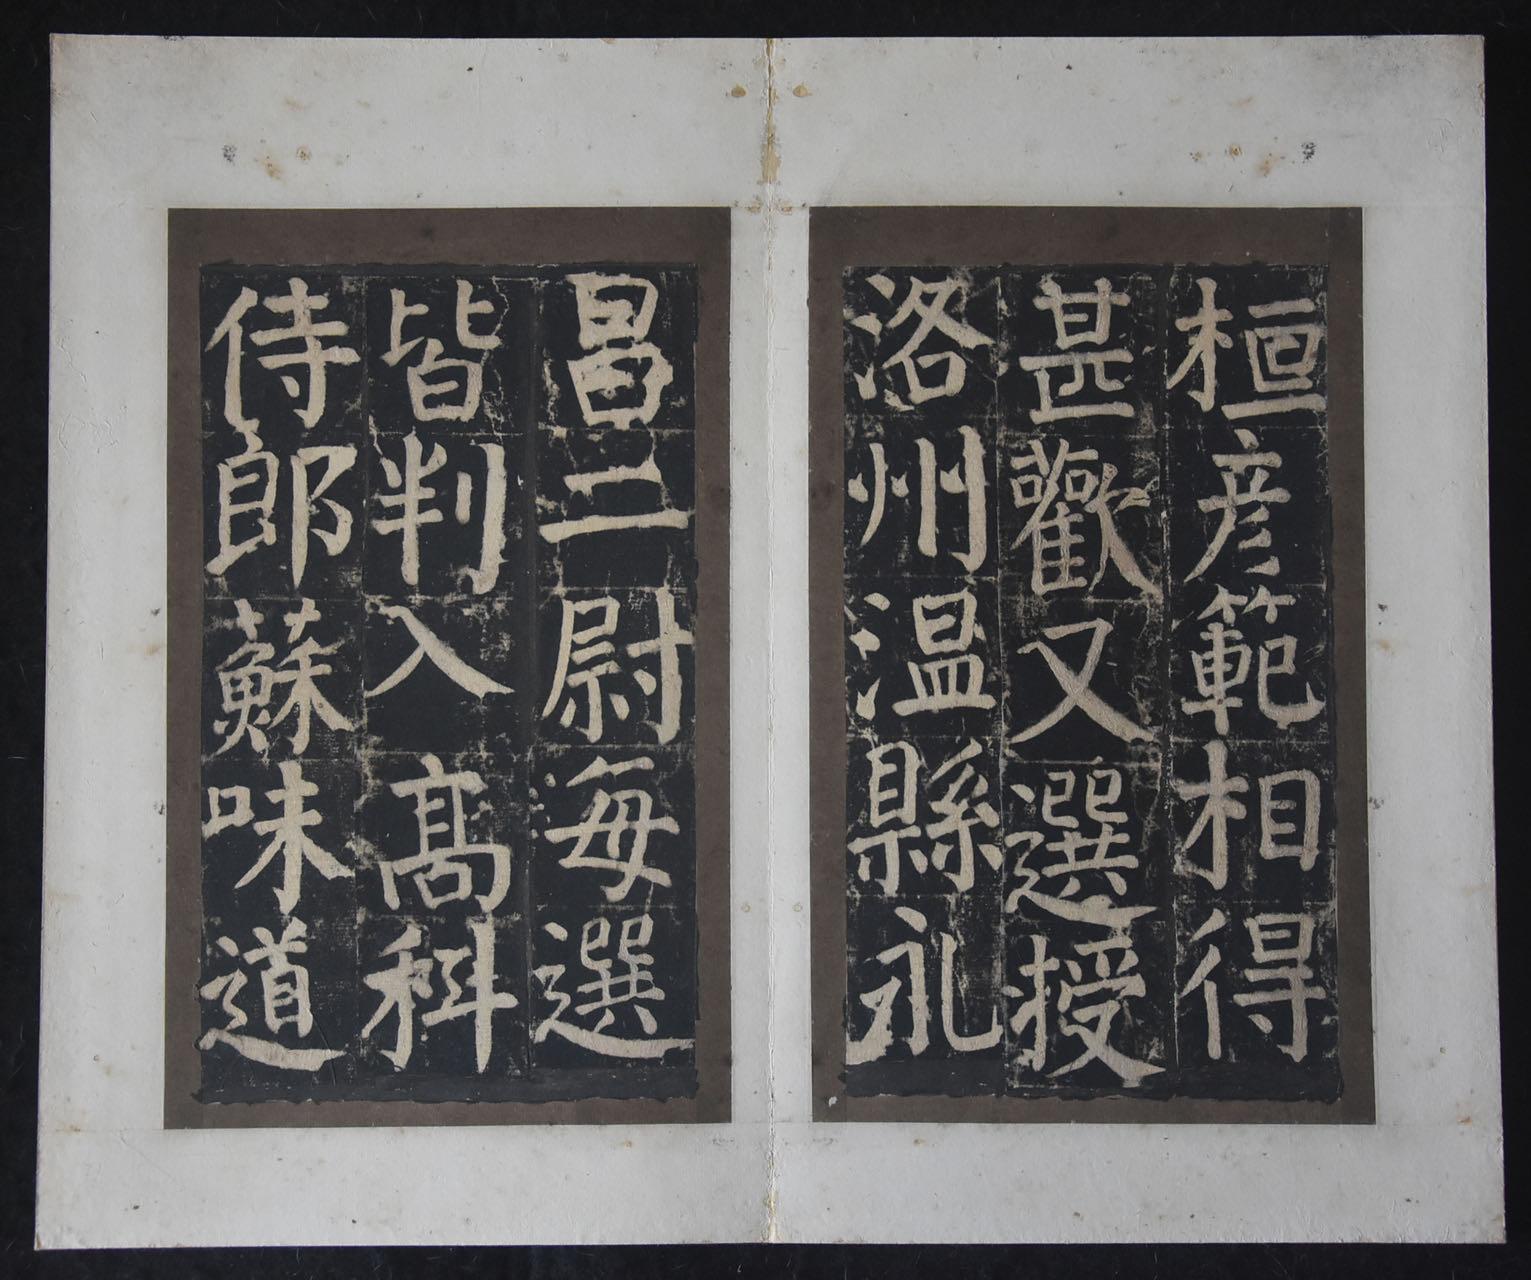 桓彦範相得
甚歡又選授
洛州温縣永
昌二尉每選
皆判入高科
侍郎蘇味道